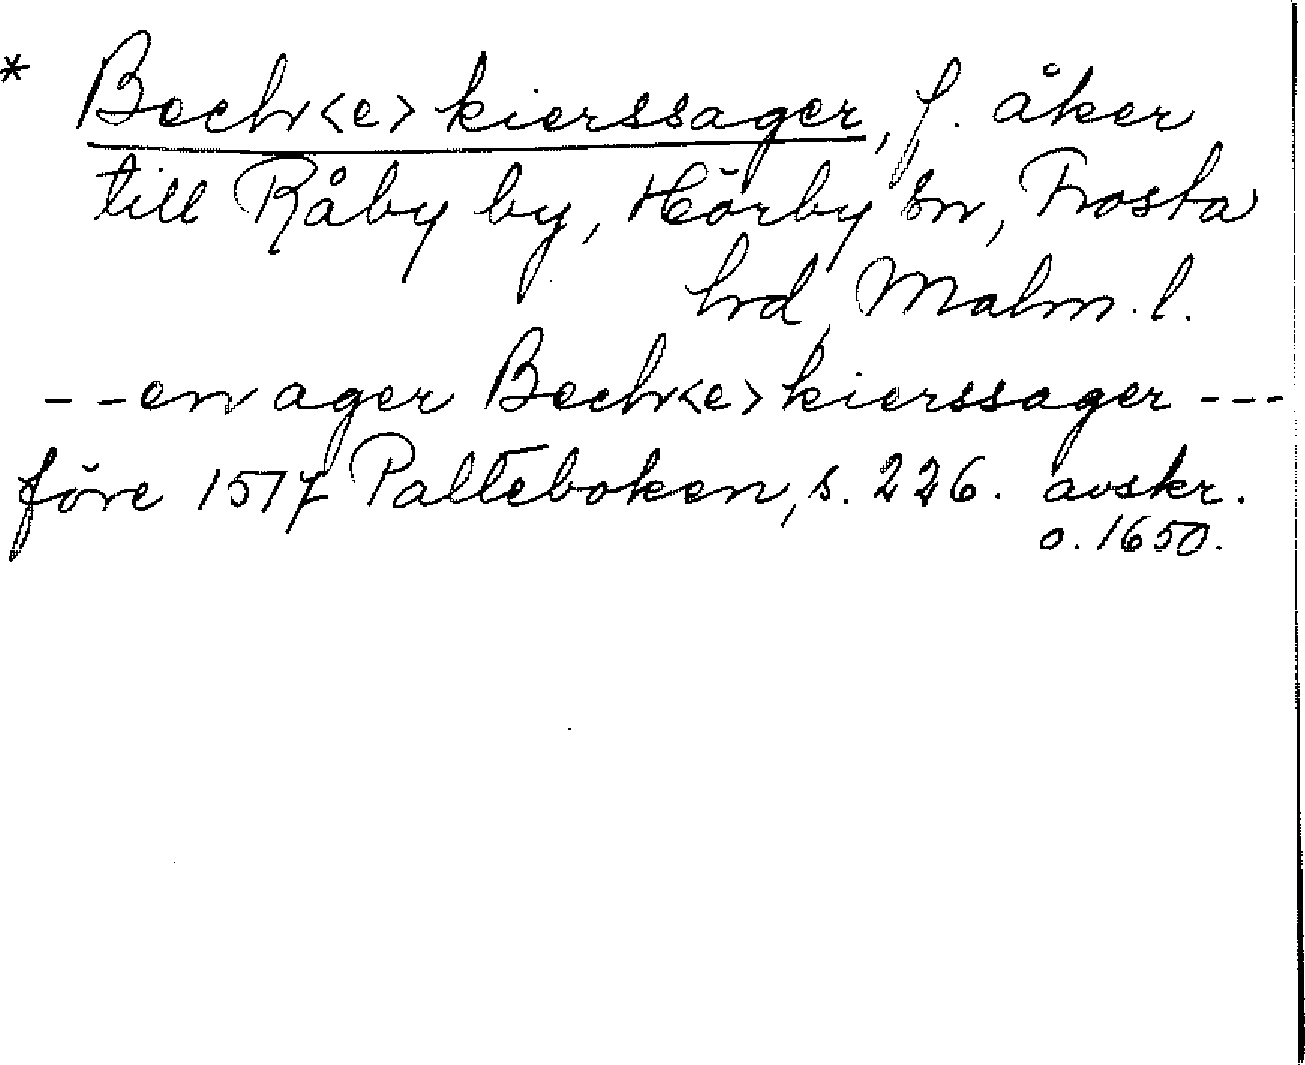 * Bech<e>kierssager, f. åker
till Råby by, Hörby sn, Frosta
hd, Malm. l.
- - en ager Bech<e>kierssager - - -
före 1517 Palteboken, s. 226. avskr.
o. 1650.